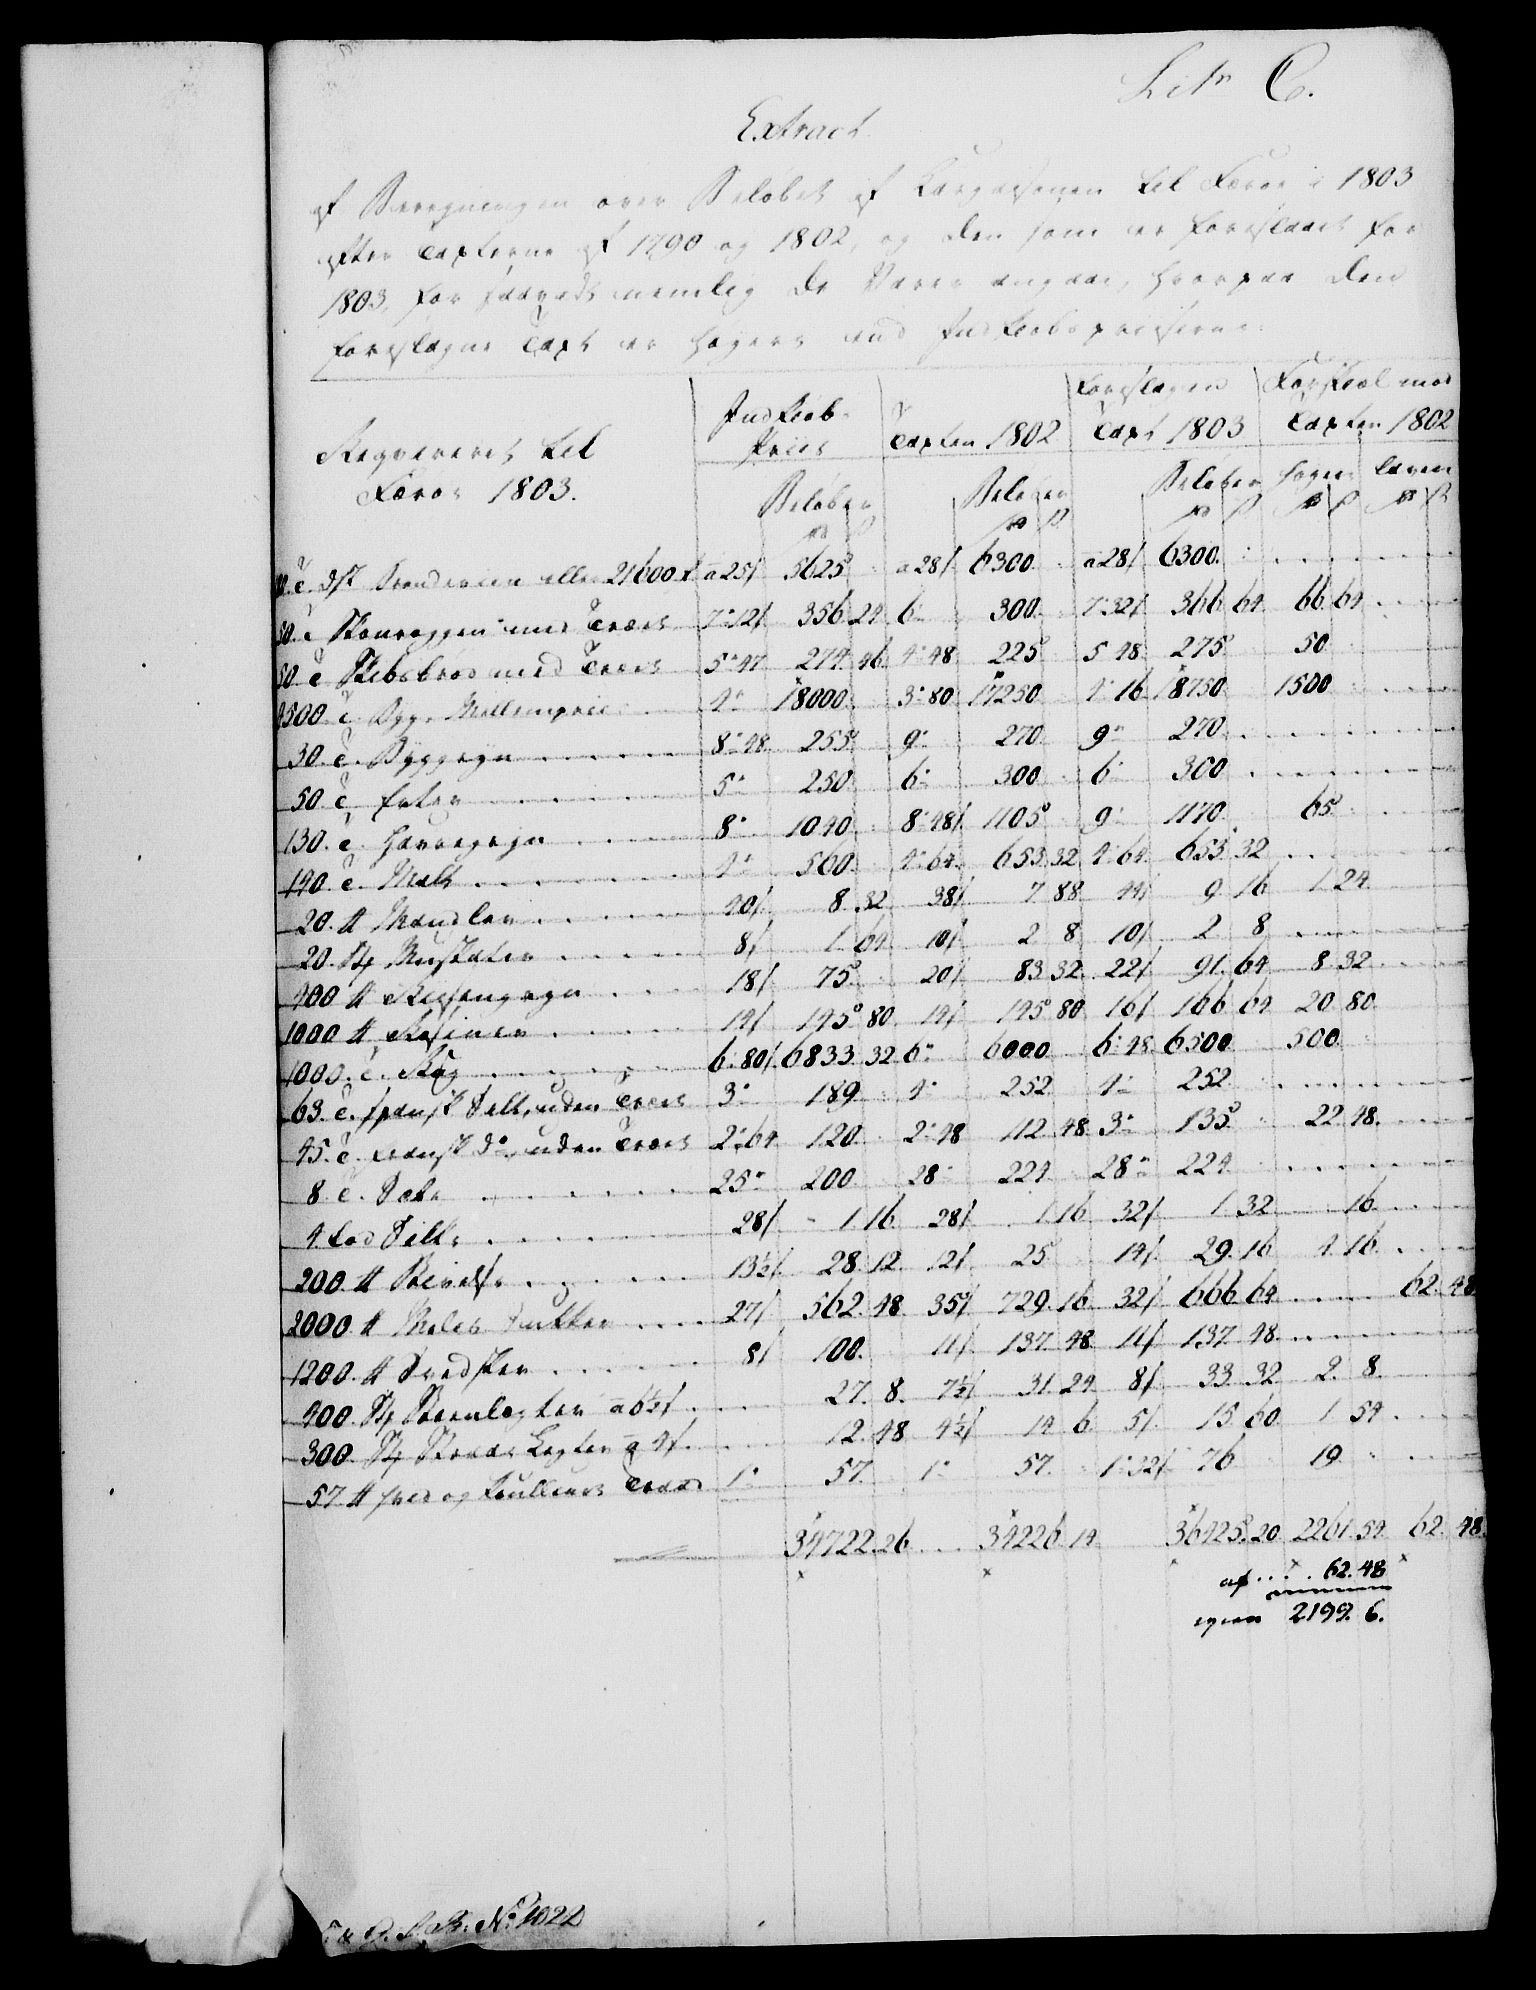 Litr C.
Extract
af Beregningen over Beløbet af Cargaisonen til Færøe i 1803
efter Taxterne af 1790 og 1802, og den som er foreslaaet for
1803, for saavidt nemlig de Varer angaar, hvorpaa den
foreslagne Taxt er høyere end Indkiøbspriiserne.
Reqvireret til Færøe 1803. Indkiøbs Priis Taxten 1802 Foreslagen Taxt 1803 Forskiel mod Taxten 1802
Beløber Beløber Beløber høyere lavere
T. d/k Brændeviin eller 21600 a 25 5625 a 28 6300 a 28 6300
50. T med Træet 7 12 356 24 6 300 7 32 366 64 66 64
50. T Skibsbrød med Træet 5 47 274 46 4 48 225 5 48 275 50
4500. T Byg 4 18000 3 80 17250 4 16 18750 1500
30. T. Byggryn 8 48 255 9 270 9 270
50. T Erter 5 250 6 300 6 300
130. T. Havregryn 8 1040 8 48 1105 9 1170 65
140. T. Malt 4 560 4 64 653 32 4 64 653 32
20. ℔ Mandler 40 8 32 38 7 88 44 9 16 1 24
20. St Muskater 8 1 64 10 2 8 10 2 8
400 ℔ Riisengryn 18 75 20 83 32 22 91 64 8 32
1000 ℔ Rosiner 14 145 80 14 145 80 16 166 64 20 80
1000. T. Rug 6 80 6833 32 6 6000 6 48 6500 500
63. T. spansk Salt, uden Træet 3 189 4 252 4 252
45. T. fransk do uden Træet 2 64 120 2 48 112 48 3 135 22 48
8. T. 25 200 28 224 28 224
4 Lod Silke 28 1 16 28 1 16 32 1 32 16
200. ℔ 13½ 28 12 12 25 14 29 16 4 16
2000 ℔ Meles Sukker 27 562 48 35 729 16 32 666 64 62 48
1200. ℔ Svedsker 8 100 11 137 48 11 137 48
400. St a 6½ 27 8 7½ 31 24 8 33 32 2 8
300. St Lægter a 4 12 48 4½ 14 6 5 15 60 1 54
57 ℔ hvid og Traad 1 57 1 57 1 32 76 19
34722. 26 34226 14 36425. 20 2261. 54 62. 48
af 62. 48
igien 2199. 6.
No 1024